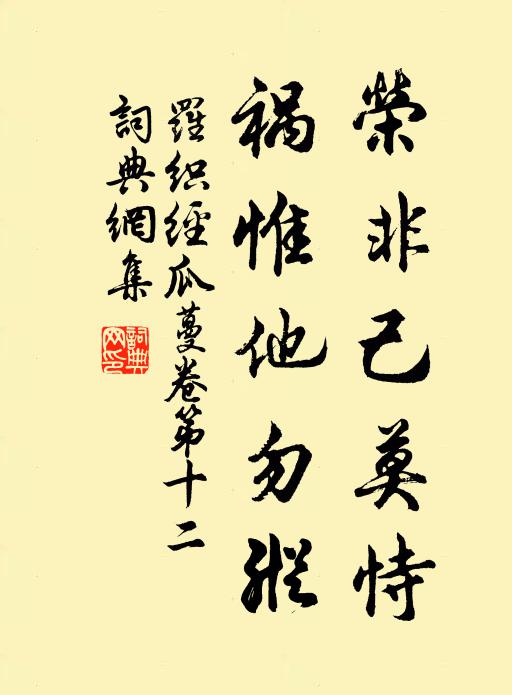 榮非己莫恃
禍惟他勿縱
羅织經瓜蔓卷第十二
詞典網集
詞典
网印